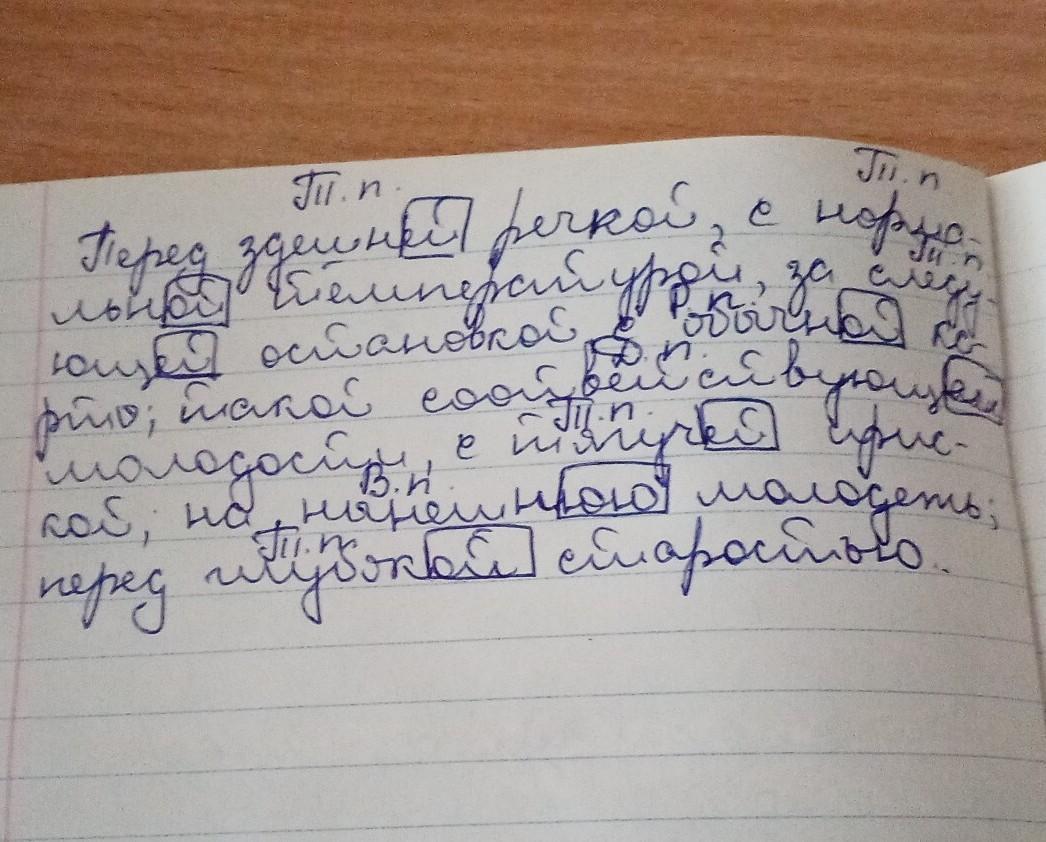 Т.п. Т.п
Перед здешней речкой, с норма-
Т.п
льной температурой, за следу-
Р.п.
ющей остановкой с обычной ка-
Д.п.
рты; такой соответствующей
Т.п.
молодости, с тягучей ирис-
В.п.
кой, на нынешнюю молодежь;
Т.п.
перед глубокой старостью.